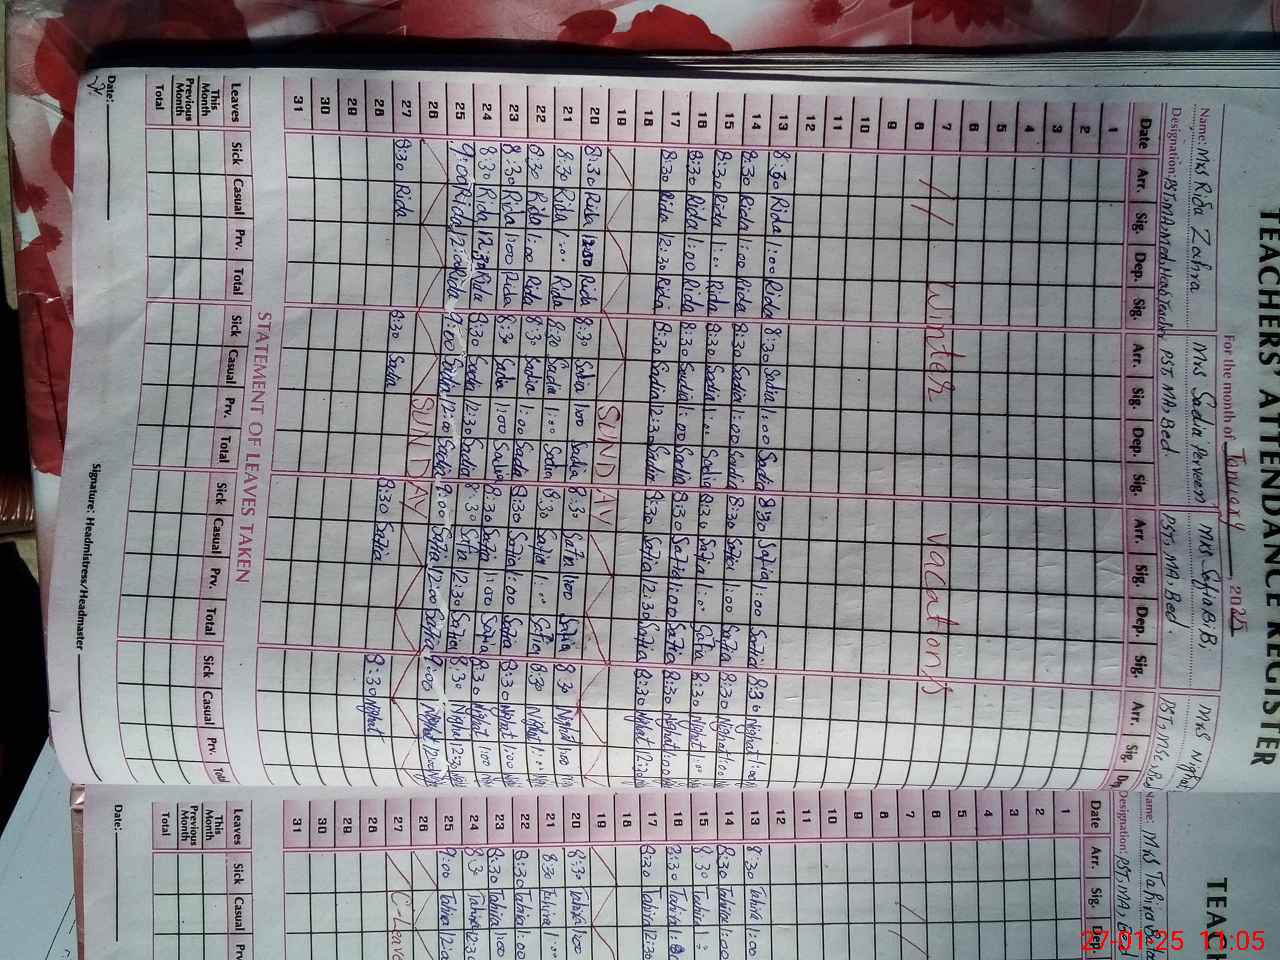 TEACHERS' ATTENDANCE REGISTER
For the month of January, 2025
Name: Mrs Rida Zahra Mrs Sadia Perveen Mrs Safia B.B, Mrs Nighat
Designation: PST, MA, Med PST, MA, Bed. PST, MA, Bed. PST, MSc,
Date Arr. Sig. Dep. Sig. Arr. Sig. Dep. Sig. Arr. Sig. Dep. Sig. Arr. Sig.
1
2
3
4
5
6
7 Winter vacations
8
9
10
11
12
13 8:30 Rida 1:00 Rida 8:30 Sadia 1:00 Sadia 8:30 Safia 1:00 Safia 8:30 Nighat 1:00
14 8:30 Rida 1:00 Rida 8:30 Sadia 1:00 Sadia 8:30 Safia 1:00 Safia 8:30 Nighat 1:00
15 8:30 Rida 1:00 Rida 8:30 Sadia 1:00 Sadia 8:30 Safia 1:00 Safia 8:30 Nighat 1:00
16 8:30 Rida 1:00 Rida 8:30 Sadia 1:00 Sadia 8:30 Safia 1:00 Safia 8:30 Nighat 1:00
17 8:30 Rida 12:30 Rida 8:30 Sadia 12:30 Sadia 8:30 Safia 12:30 Safia 8:30 Nighat 12:30
18
19 SUNDAY
20 8:30 Rida Rida 8:30 Sadia 1:00 Sadia 8:30 Safia 1:00 Safia 8:30 Nighat 1:00
21 8:30 Rida 1:00 Rida 8:30 Sadia 1:00 Sadia 8:30 Safia 1:00 Safia 8:30 Nighat 1:00
22 8:30 Rida 1:00 Rida 8:30 Sadia 1:00 Sadia 8:30 Safia 1:00 Safia 8:30 Nighat 1:00
23 8:30 Rida 1:00 Rida 8:30 Sadia 1:00 Sadia 8:30 Safia 1:00 Safia 8:30 Nighat 1:00
24 8:30 Rida 12:30 Rida 8:30 Sadia 12:30 Sadia 8:30 Safia 12:30 Safia 8:30 Nighat 12:30
25 9:00 Rida 12:00 Rida 9:00 Sadia 12:00 Sadia 9:00 Safia 12:00 Safia 9:00 Nighat 12:00
26 SUNDAY
27 8:30 Rida 8:30 Sadia 8:30 Safia 8:30 Nighat
28
29
30
31
STATEMENT OF LEAVES TAKEN
Leaves Sick Casual Prv. Total Sick Casual Prv. Total Sick Casual Prv. Total Sick Casual Prv. Total
This Month
Previous Month
Total
Date: Signature: Headmistress/Headmaster
TEAC
Name: Mrs Tahira
Designation: PST, MA,
Date Arr. Sig. Dep.
1
2
3
4
5
6
7
8
9
10
11
12
13 8:30 Tahira 1:00
14 8:30 Tahira 1:00
15 8:30 Tahira
16 8:30 Tahira
17 8:30 Tahira 12:30
18
19
20 8:30 Tahira 1:00
21 8:30 Tahira 1:00
22 8:30 Tahira 1:00
23 8:30 Tahira 1:00
24 8:30 Tahira 12:30
25 9:00 Tahira
26
27 C-Leave
28
29
30
31
Leaves Sick Casual Prv.
This Month
Previous Month
Total
Date:
27-01-25 11:05